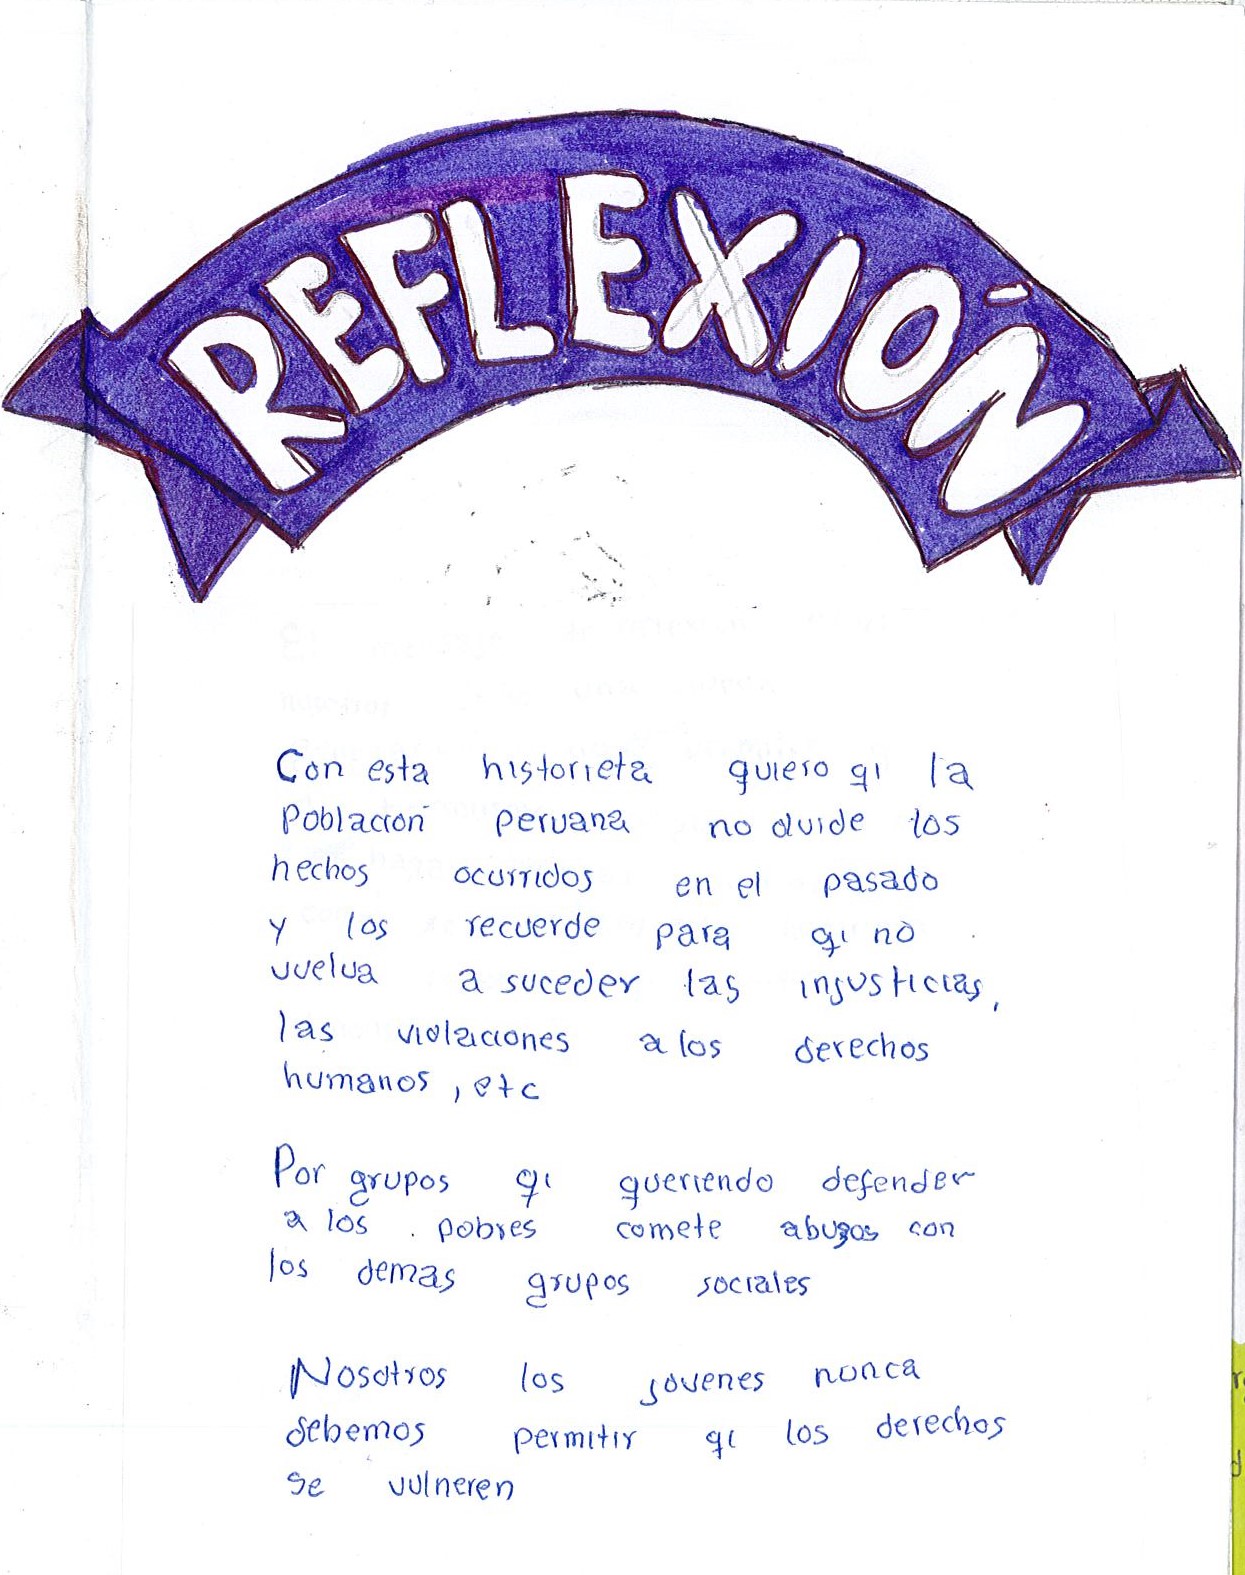 REFLEXIÓN
Con esta historieta quiero qi la
Población peruana no olvide los
hechos ocurridos en el pasado
y los recuerde para qi no
vuelva a suceder las injusticias,
las violaciones a los derechos
humanos, etc
Por grupos qi queriendo defender
a los pobres comete abusos con
los demas grupos sociales
Nosotros los jovenes nunca
debemos permitir qi los derechos
se vulneren